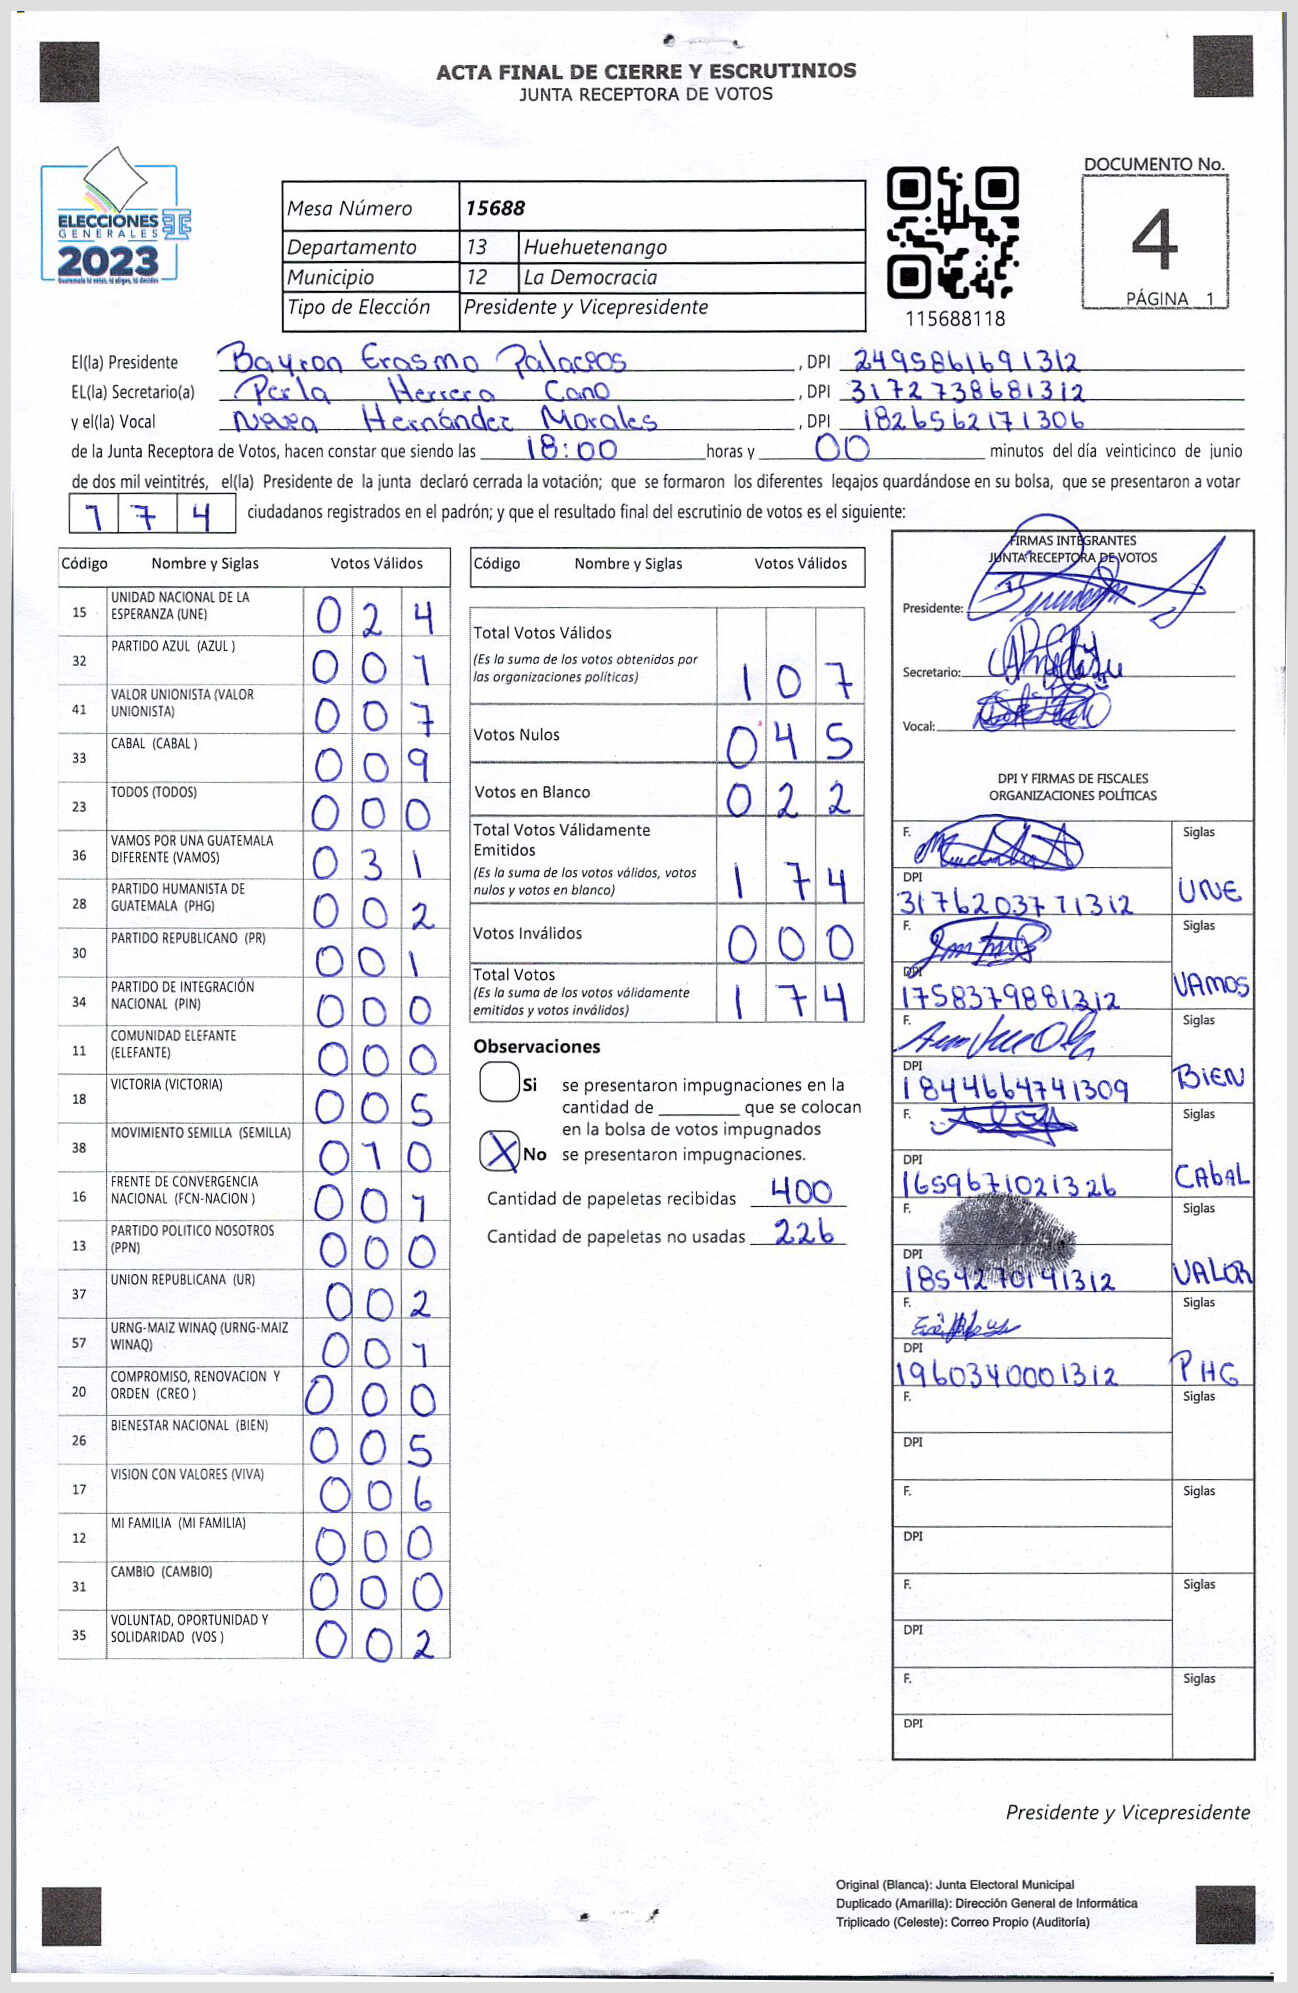 ACTA FINAL DE CIERRE Y ESCRUTINIOS
JUNTA RECEPTORA DE VOTOS
DOCUMENTO No.
4
PÁGINA 1
ELECCIONES
GENERALES
2023
Mesa Número 15688
Departamento 13 Huehuetenango
Municipio 12 La Democracia
Tipo de Elección Presidente y Vicepresidente
115688118
El(la) Presidente Bayron Erasmo Palacios, DPI 2495861691312
EL(la) Secretario(a) Perla Herrera Cano, DPI 3172738681312
y el(la) Vocal Hernández Morales, DPI 1826562171306
de la Junta Receptora de Votos, hacen constar que siendo las 18:00 horas y 00 minutos del día veinticinco de junio
de dos mil veintitrés, el(la) Presidente de la junta declaró cerrada la votación; que se formaron los diferentes legajos guardándose en su bolsa, que se presentaron a votar
174 ciudadanos registrados en el padrón; y que el resultado final del escrutinio de votos es el siguiente:
Código Nombre y Siglas Votos Válidos
15 UNIDAD NACIONAL DE LA ESPERANZA (UNE) 024
32 PARTIDO AZUL (AZUL ) 001
41 VALOR UNIONISTA (VALOR UNIONISTA) 007
33 CABAL (CABAL ) 009
23 TODOS (TODOS) 000
36 VAMOS POR UNA GUATEMALA DIFERENTE (VAMOS) 031
28 PARTIDO HUMANISTA DE GUATEMALA (PHG) 002
30 PARTIDO REPUBLICANO (PR) 001
34 PARTIDO DE INTEGRACIÓN NACIONAL (PIN) 000
11 COMUNIDAD ELEFANTE (ELEFANTE) 000
18 VICTORIA (VICTORIA) 005
38 MOVIMIENTO SEMILLA (SEMILLA) 010
16 FRENTE DE CONVERGENCIA NACIONAL (FCN-NACION ) 001
13 PARTIDO POLITICO NOSOTROS (PPN) 000
37 UNION REPUBLICANA (UR) 002
57 URNG-MAIZ WINAQ (URNG-MAIZ WINAQ) 001
20 COMPROMISO, RENOVACION Y ORDEN (CREO ) 000
26 BIENESTAR NACIONAL (BIEN) 005
17 VISION CON VALORES (VIVA) 006
12 MI FAMILIA (MI FAMILIA) 000
31 CAMBIO (CAMBIO) 000
35 VOLUNTAD, OPORTUNIDAD Y SOLIDARIDAD (VOS ) 002
Código Nombre y Siglas Votos Válidos
Total Votos Válidos
(Es la suma de los votos obtenidos por
las organizaciones políticas) 107
Votos Nulos 045
Votos en Blanco 022
Total Votos Válidamente
Emitidos
(Es la suma de los votos válidos, votos
nulos y votos en blanco) 174
Votos Inválidos 000
Total Votos
(Es la suma de los votos válidamente
emitidos y votos inválidos) 174
Observaciones
Si se presentaron impugnaciones en la
cantidad de ________ que se colocan
en la bolsa de votos impugnados
X No se presentaron impugnaciones.
Cantidad de papeletas recibidas 400
Cantidad de papeletas no usadas 226
FIRMAS INTEGRANTES
JUNTA RECEPTORA DE VOTOS
Presidente:
Secretario:
Vocal:
DPI Y FIRMAS DE FISCALES
ORGANIZACIONES POLÍTICAS
F. Siglas
DPI 3176203771312 UNE
F. Siglas
DPI 1758379881312 VAMOS
F. Siglas
DPI 1844664741309 BIEN
F. Siglas
DPI 1659671021326 CAbAL
F. Siglas
DPI 1854270141312 VALOR
F. Siglas
DPI 1960340001312 PHG
F. Siglas
DPI
F. Siglas
DPI
F. Siglas
DPI
F. Siglas
DPI
Presidente y Vicepresidente
Original (Blanca): Junta Electoral Municipal
Duplicado (Amarilla): Dirección General de Informática
Triplicado (Celeste): Correo Propio (Auditoría)